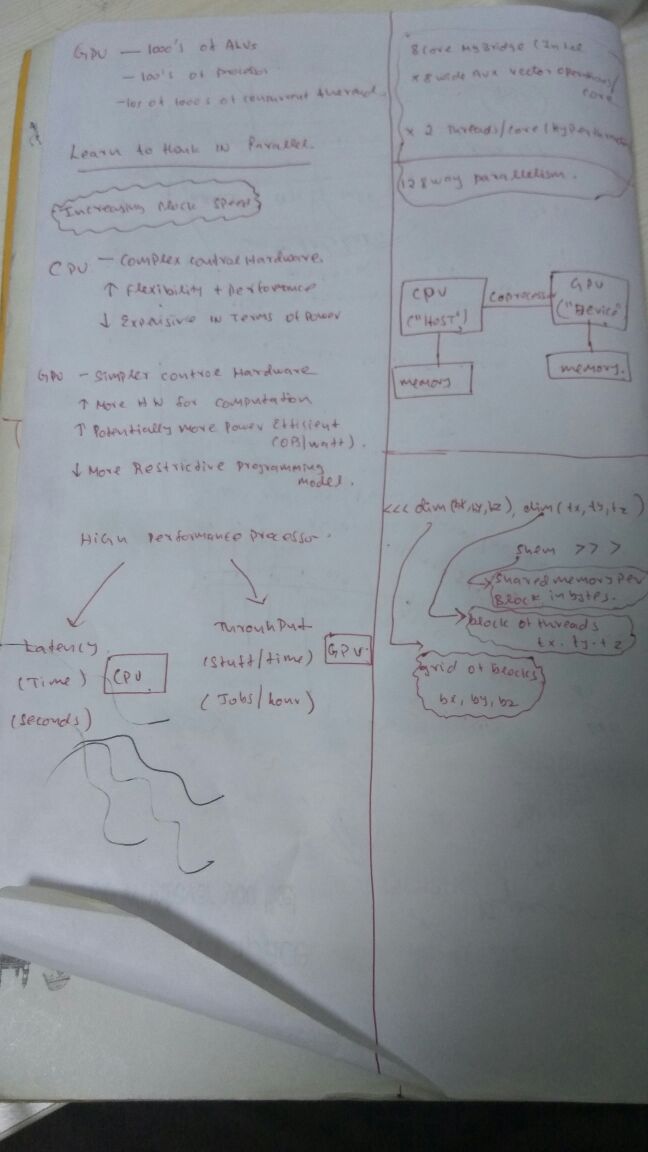 GPU — 1000's of ALUs
— 100's of processor
— 10s of 1000s of concurrent thread
Learn to think in Parallel.
Increasing clock speed
CPU — Complex control Hardware.
↑ Flexibility + performance
↓ Expensive in Terms of Power
GPU — Simpler control Hardware
↑ More HW for computation
↑ Potentially More Power Efficient
(OPS/watt).
↓ More Restrictive Programming
model.
High performance processor.
Latency
(Time)
(seconds)
CPU
Throuhput
(Stuff/time)
(Jobs/hour)
GPU
8 core Ivy Bridge (Intel
× 8 wide AVX vector operations/
core
× 2 Threads/core (Hyperthreading
128 way parallelism.
CPU
("HOST")
coprocessor
GPU
("Device"
memory
memory.
<<< dim(bx,by,bz), dim(tx,ty,tz)
shem >>>
shared memory per
Block in bytes.
block of threads
tx.ty.tz
grid of blocks
bx, by, bz